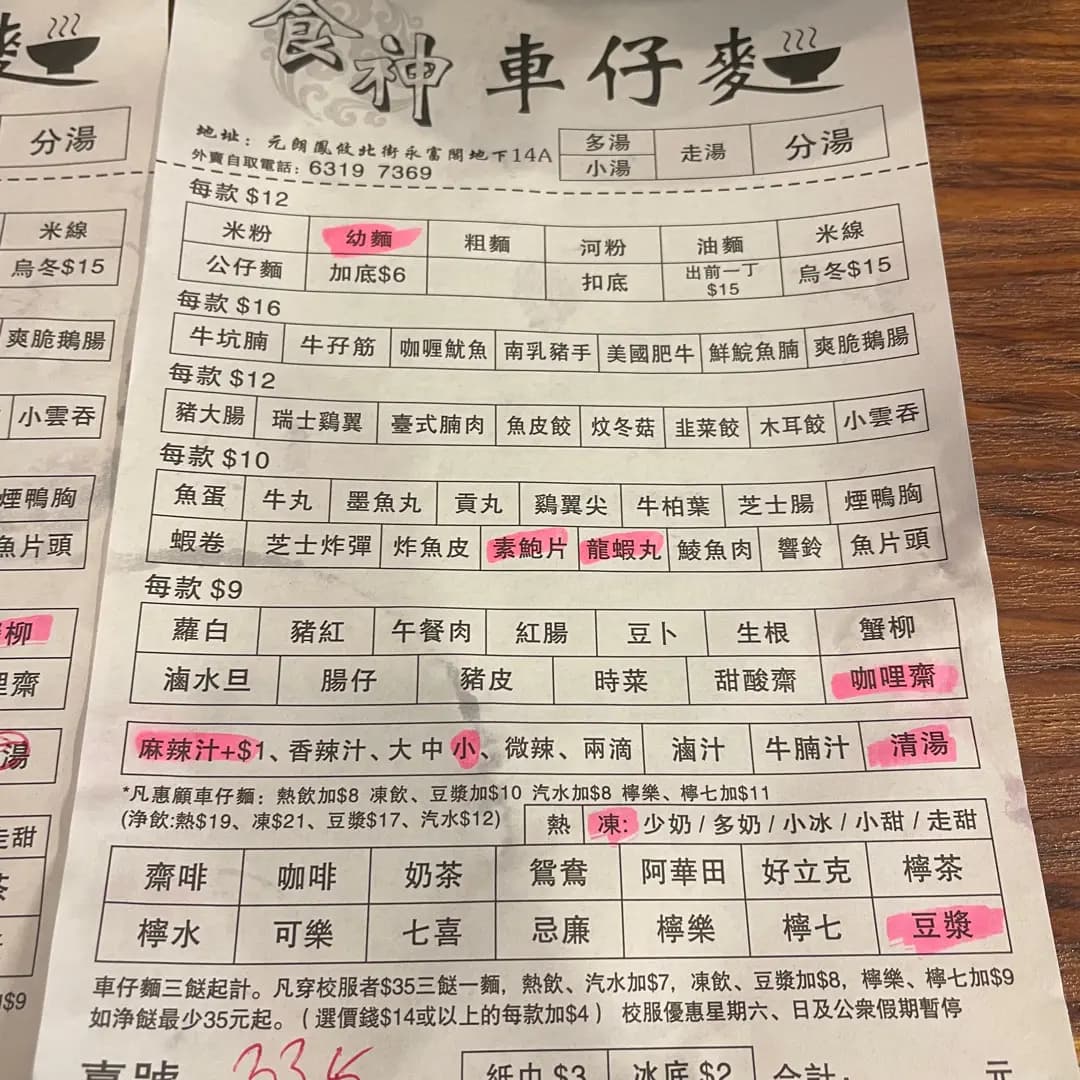 食神車仔麥
地址：元朗鳳攸北街永富閣地下14A
外賣自取電話：6319 7369
多湯 小湯 走湯 分湯
每款 $12
米粉 幼麵 粗麵 河粉 油麵 米線
公仔麵 加底$6 扣底 出前一丁$15 烏冬$15
每款 $16
牛坑腩 牛孖筋 咖喱魷魚 南乳豬手 美國肥牛 鮮鯇魚腩 爽脆鵝腸
每款 $12
豬大腸 瑞士鷄翼 臺式腩肉 魚皮餃 炆冬菇 韭菜餃 木耳餃 小雲吞
每款 $10
魚蛋 牛丸 墨魚丸 貢丸 鷄翼尖 牛柏葉 芝士腸 煙鴨胸
蝦卷 芝士炸彈 炸魚皮 素鮑片 龍蝦丸 鯪魚肉 響鈴 魚片頭
每款 $9
蘿白 豬紅 午餐肉 紅腸 豆卜 生根 蟹柳
滷水旦 腸仔 豬皮 時菜 甜酸齋 咖哩齋
麻辣汁+$1、香辣汁、大 中 小、微辣、兩滴 滷汁 牛腩汁 清湯
*凡惠顧車仔麵：熱飲加$8 凍飲、豆漿加$10 汽水加$8 檸樂、檸七加$11
(净飲:熱$19、凍$21、豆漿$17、汽水$12)
熱 凍: 少奶 / 多奶 / 小冰 / 小甜 / 走甜
齋啡 咖啡 奶茶 鴛鴦 阿華田 好立克 檸茶
檸水 可樂 七喜 忌廉 檸樂 檸七 豆漿
車仔麵三餸起計。凡穿校服者$35三餸一麵，熱飲、汽水加$7，凍飲、豆漿加$8，檸樂、檸七加$9
如净餸最少35元起。（選價錢$14或以上的每款加$4） 校服優惠星期六、日及公衆假期暫停
紙巾 $3 冰底 $2 合計: 元
分湯
米線
烏冬$15
爽脆鵝腸
小雲吞
煙鴨胸
魚片頭
柳
哩齋
湯
走甜
$9